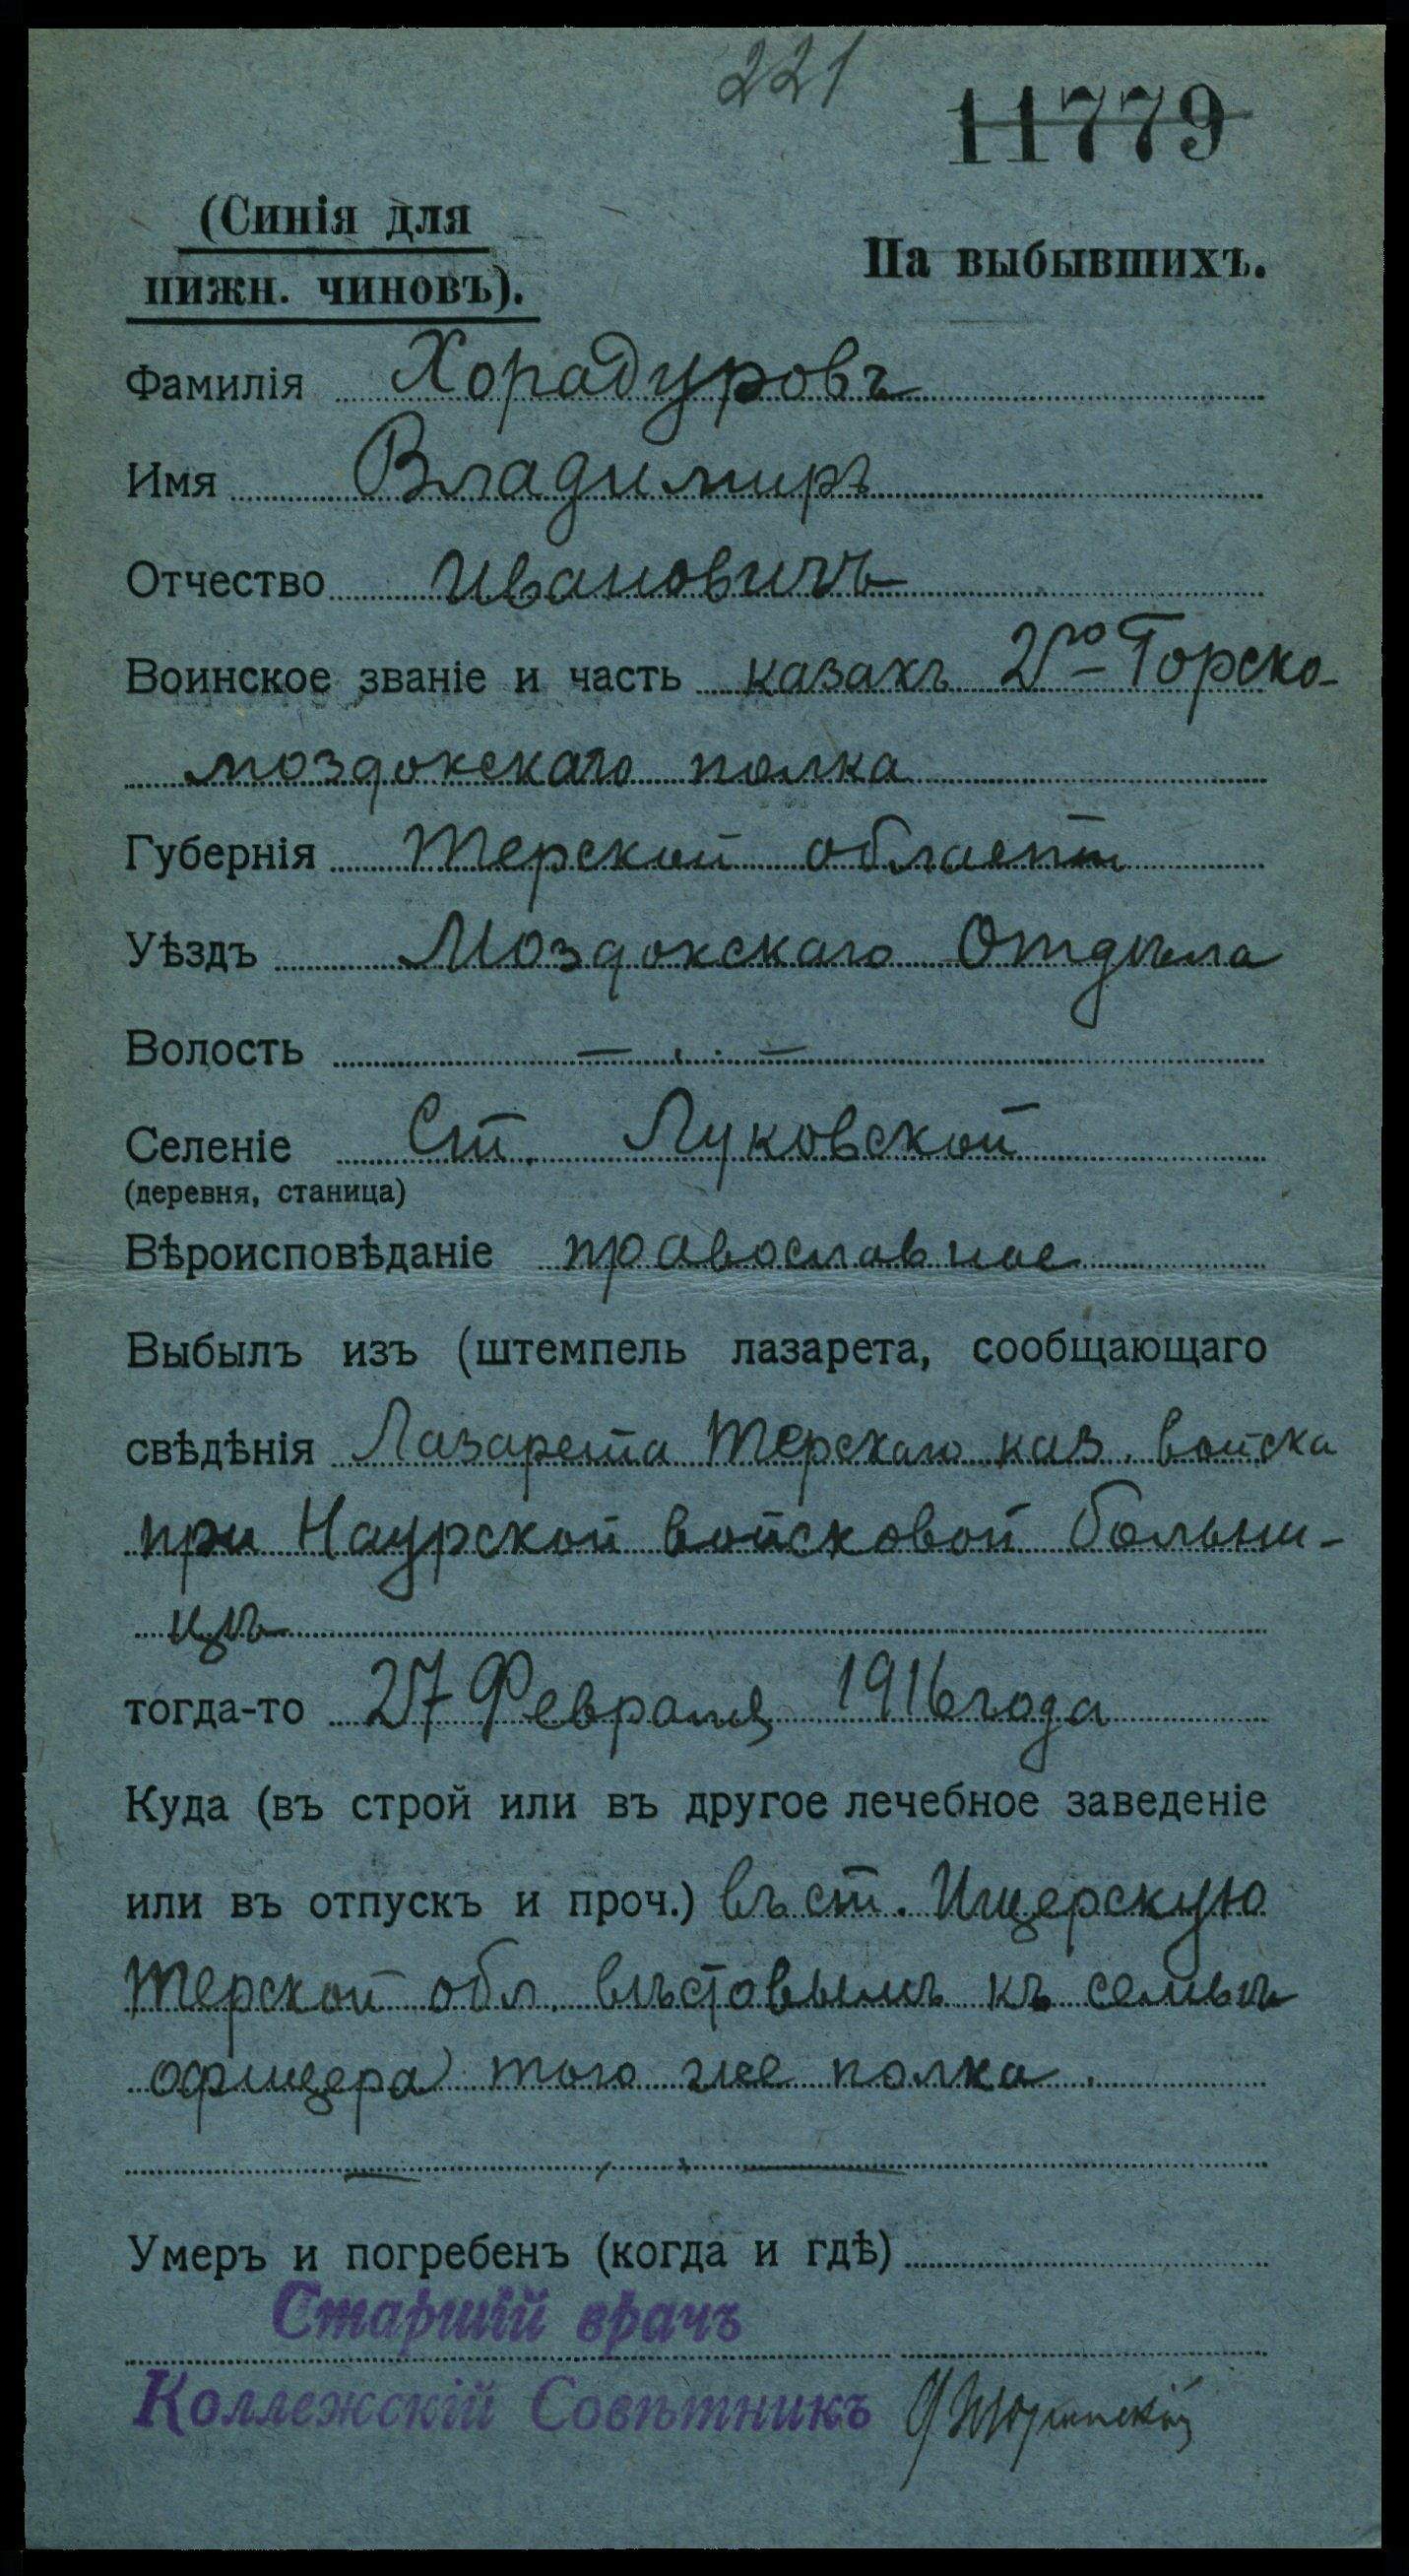 221
11779
(Синія для
нижн. чиновъ).
На выбывшихъ.
Фамилія Хорадуровъ
Имя Владимиръ
Отчество Ивановичъ
Воинское званіе и часть казакъ 2го Горско-
моздокскаго полка
Губернія Терской области
Уѣздъ Моздокскаго Отдѣла
Волость
Селеніе Ст. Луковской
(деревня, станица)
Вѣроисповѣданіе православное
Выбылъ изъ (штемпель лазарета, сообщающаго
свѣдѣнія Лазарета Терскаго каз. войска
при Наурской войсковой больни-
цѣ
тогда-то 27 Февраля 1916 года
Куда (въ строй или въ другое лечебное заведеніе
или въ отпускъ и проч.) въ ст. Ищерскую
Терской обл. вѣстовымъ къ семьѣ
офицера того же полка.
Умеръ и погребенъ (когда и гдѣ)
Старшій врачъ
Коллежскій Совѣтникъ